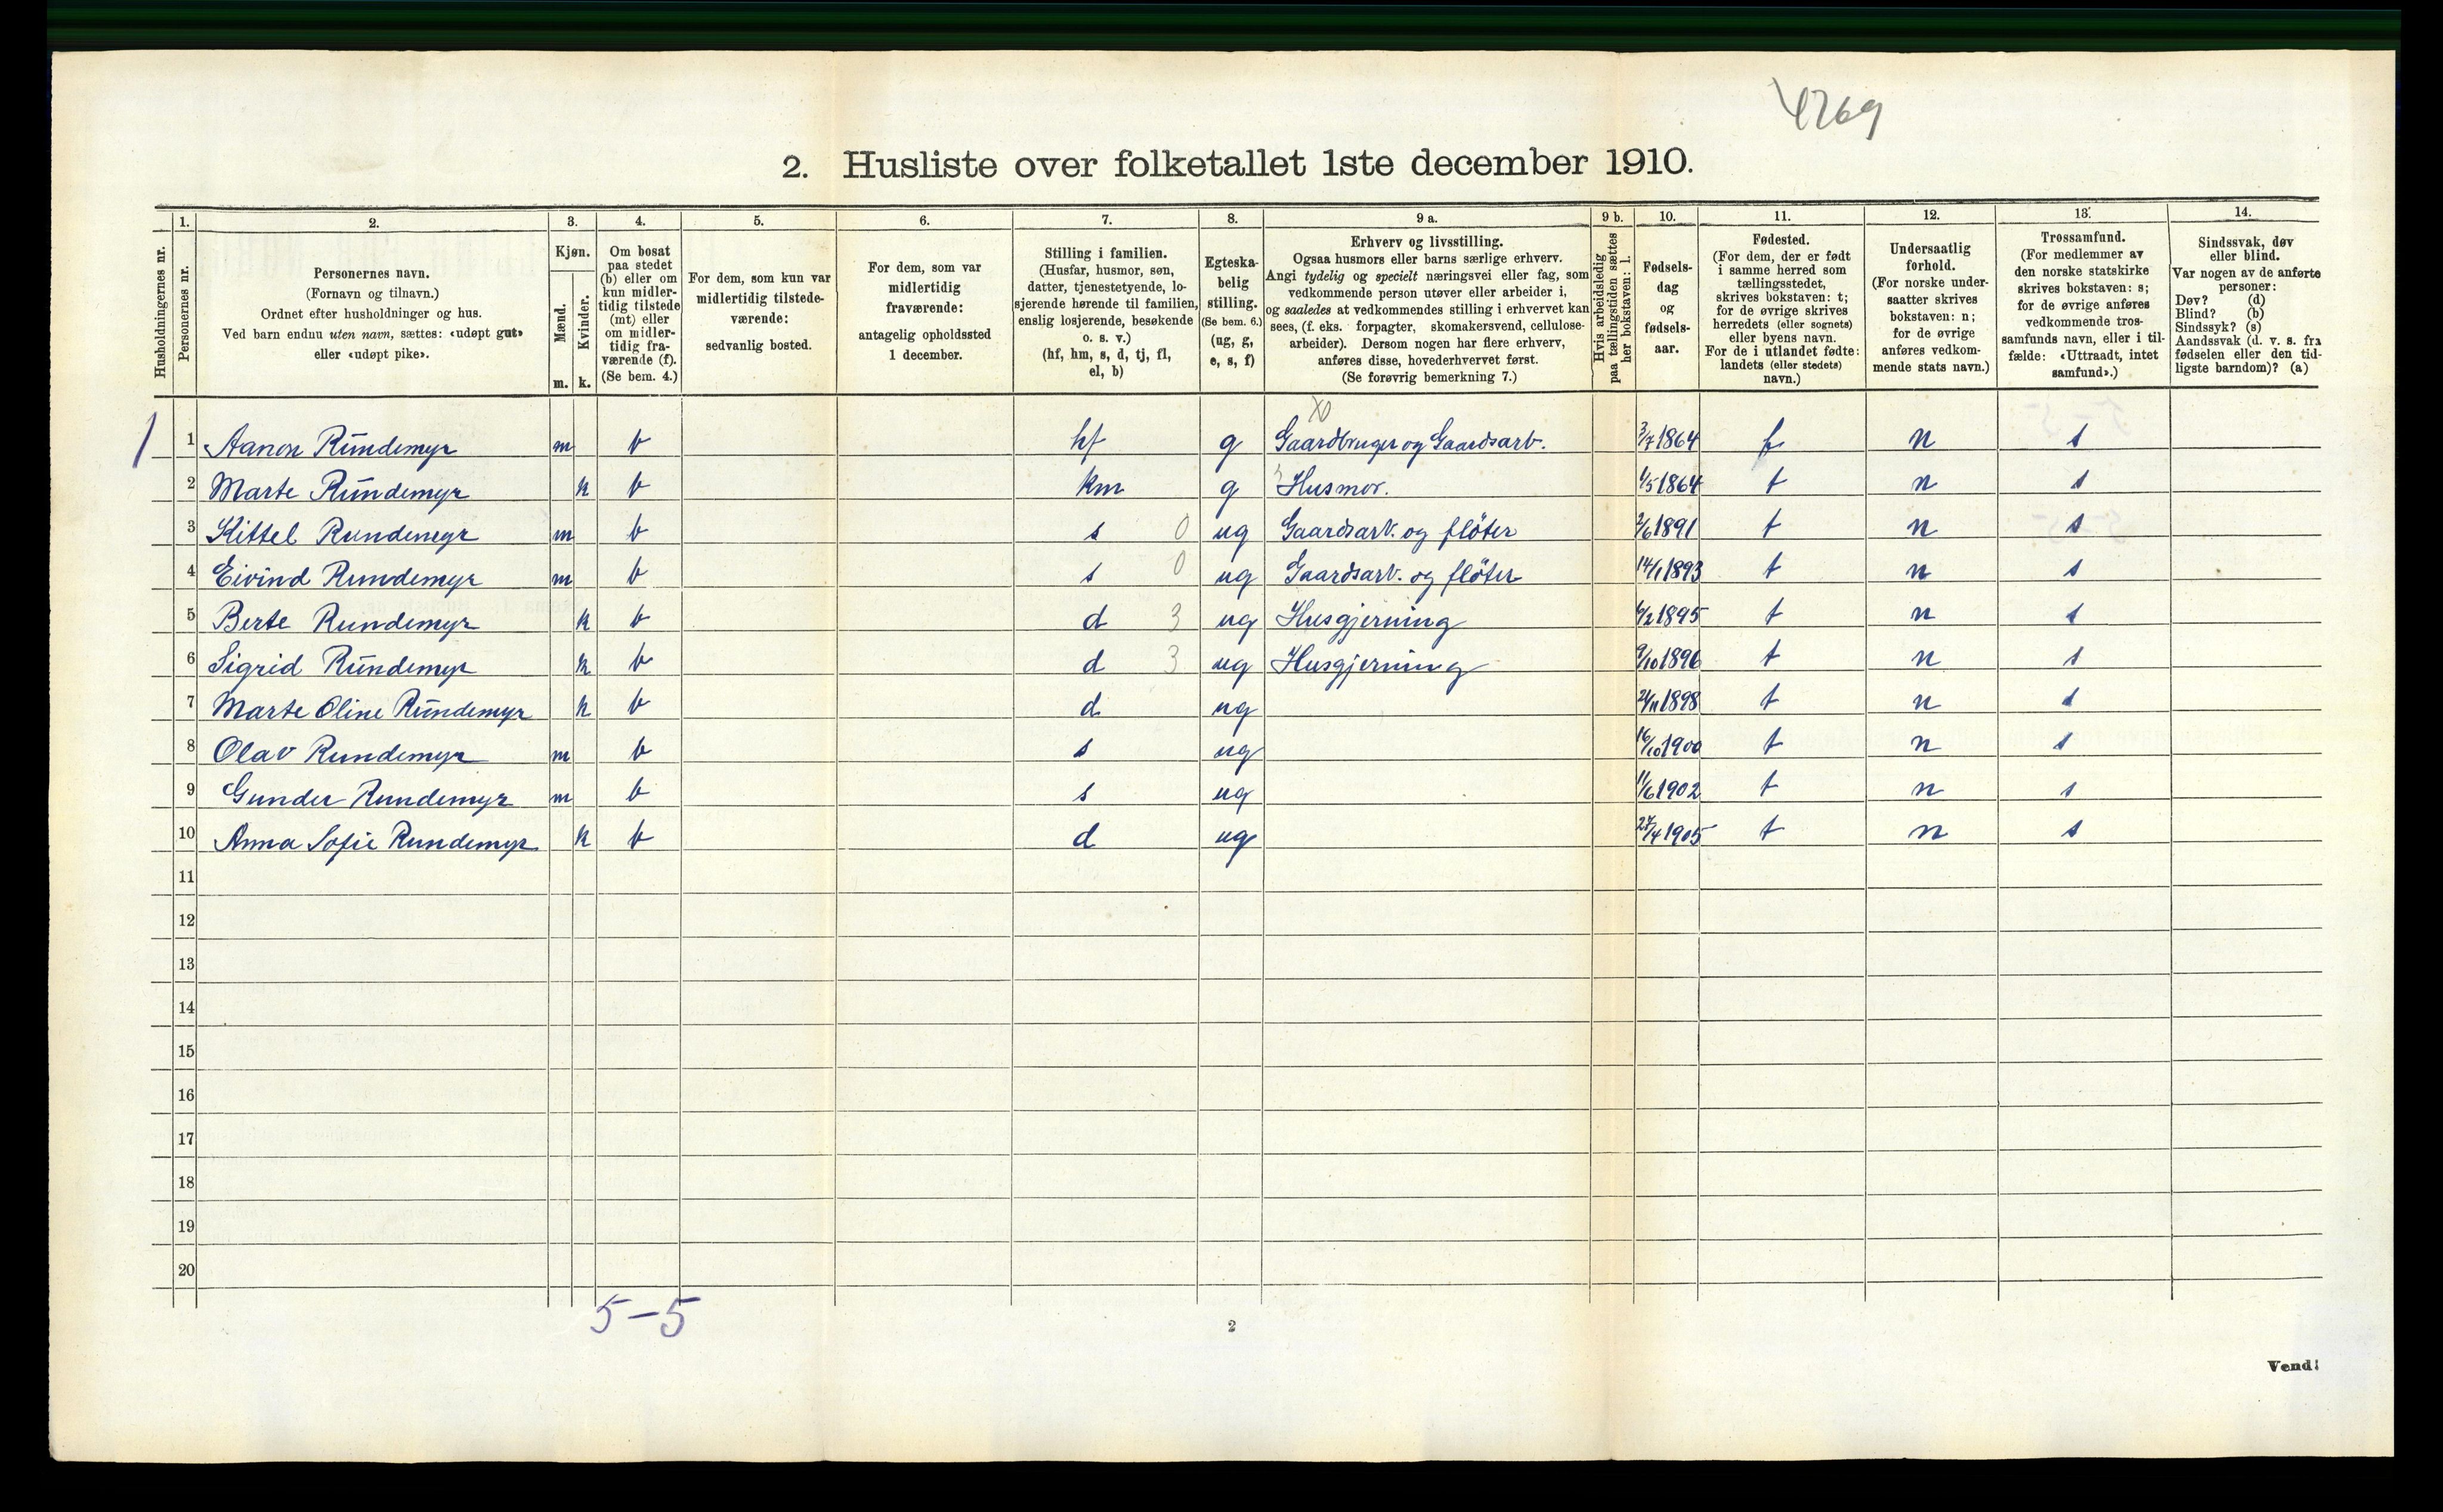 4269
2. Husliste over folketallet 1ste december 1910.
Husholdningernes nr.
1. Personernes nr.
2. Personernes navn.
(Fornavn og tilnavn.)
Ordnet efter husholdninger og hus.
Ved barn endnu uten navn, sættes: «udøpt gut»
eller «udøpt pike».
3. Kjøn.
Mænd. m.
Kvinder. k.
4. Om bosat
paa stedet
(b) eller om
kun midler-
tidig tilstede
(mt) eller
om midler-
tidig fra-
værende (f).
(Se bem. 4.)
5. For dem, som kun var
midlertidig tilstede-
værende:
sedvanlig bosted.
6. For dem, som var
midlertidig
fraværende:
antagelig opholdssted
1 december.
7. Stilling i familien.
(Husfar, husmor, søn,
datter, tjenestetyende, lo-
sjerende hørende til familien,
enslig losjerende, besøkende
o. s. v.)
(hf, hm, s, d, tj, fl,
el, b)
8. Egteska-
belig
stilling.
(Se bem. 6.)
(ug, g,
e, s, f)
9 a. Erhverv og livsstilling.
Ogsaa husmors eller barns særlige erhverv.
Angi tydelig og specielt næringsvei eller fag, som
vedkommende person utøver eller arbeider i,
og saaledes at vedkommendes stilling i erhvervet kan
sees, (f. eks. forpagter, skomakersvend, cellulose-
arbeider). Dersom nogen har flere erhverv,
anføres disse, hovederhvervet først.
(Se forøvrig bemerkning 7.)
9 b. Hvis arbeidsledig
paa tællingstiden sættes
her bokstaven: l.
10. Fødsels-
dag
og
fødsels-
aar.
11. Fødested.
(For dem, der er født
i samme herred som
tællingsstedet,
skrives bokstaven: t;
for de øvrige skrives
herredets (eller sognets)
eller byens navn.
For de i utlandet fødte:
landets (eller stedets)
navn.)
12. Undersaatlig
forhold.
(For norske under-
saatter skrives
bokstaven: n;
for de øvrige
anføres vedkom-
mende stats navn.)
13. Trossamfund.
(For medlemmer av
den norske statskirke
skrives bokstaven: s;
for de øvrige anføres
vedkommende tros-
samfunds navn, eller i til-
fælde: «Uttraadt, intet
samfund».)
14. Sindssvak, døv
eller blind.
Var nogen av de anførte
personer:
Døv? (d)
Blind? (b)
Sindssyk? (s)
Aandssvak (d. v. s. fra
fødselen eller den tid-
ligste barndom)? (a)
X0
1 1 Aanon Rundemyr m b hf g Gaardbruger og Gaardsarb. 3/7 1864 t n s
2 Marte Rundemyr k b km g Husmor. 1/5 1864 t n s
3 Kittel Rundemyr m b s 0 ug Gaardsarb. og flöter 2/6 1891 t n s
4 Eivind Rundemyr m b s 0 ug Gaardsarb. og flöter 14/1 1893 t n s
5 Berte Rundemyr k b d 3 ug Husgjerning 6/2 1895 t n s
6 Sigrid Rundemyr k b d 3 ug Husgjerning 9/10 1896 t n s
7 Marte Oline Rundemyr k b d ug 24/11 1898 t n s
8 Olav Rundemyr m b s ug 16/10 1900 t n s
9 Gunder Rundemyr m b s ug 11/6 1902 t n s
10 Anna Sofie Rundemyr k b d ug 27/4 1905 t n s
11
12
13
14
15
16
17
18
19
20
5-5
2
Vend!